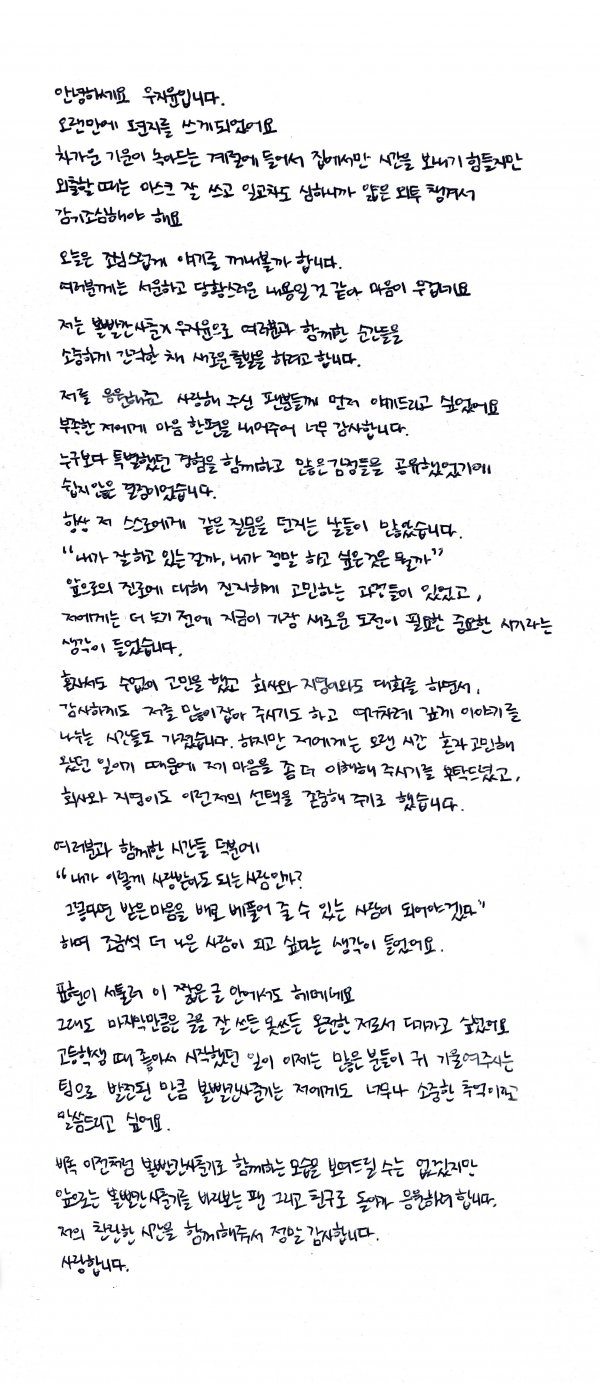 안녕하세요 우지윤입니다.
오랜만에 편지를 쓰게되었어요
차가운 기운이 녹아드는 계절에 들어서 집에서만 시간을 보내기 힘들지만
외출할 때는 마스크 잘 쓰고 일교차도 심하니까 얇은 외투 챙겨서
감기조심해야 해요
오늘은 조심스럽게 얘기를 꺼내볼까 합니다.
여러분께는 서운하고 당황스러운 내용일 것 같아 마음이 무겁네요
저는 볼빨간사춘기 우지윤으로 여러분과 함께한 순간들을
소중하게 간직한 채 새로운 출발을 하려고 합니다.
저를 응원해주고 사랑해 주신 팬분들께 먼저 얘기드리고 싶었어요
부족한 저에게 마음 한편을 내어주어 너무 감사합니다.
누구보다 특별했던 경험을 함께하고 많은 감정들을 공유했었기에
쉽지 않은 결정이었습니다.
항상 저 스스로에게 같은 질문을 던지는 날들이 많았습니다.
"내가 잘하고 있는걸까, 내가 정말 하고 싶은것은 뭘까"
앞으로의 진로에 대해 진지하게 고민하는 과정들이 있었고,
저에게는 더 늦기 전에 지금이 가장 새로운 도전이 필요한 중요한 시기라는
생각이 들었습니다.
혼자서도 수없이 고민을 했고 회사와 지영이와도 대화를 하면서,
감사하게도 저를 많이 잡아 주시기도 하고 여러차례 깊게 이야기를
나누는 시간들도 가졌습니다. 하지만 저에게는 오랜 시간 혼자 고민해
왔던 일이기 때문에 제 마음을 좀 더 이해해 주시기를 부탁드렸고,
회사와 지영이도 이런 저의 선택을 존중해 주기로 했습니다.
여러분과 함께한 시간들 덕분에
"내가 이렇게 사랑받아도 되는 사람인가?
그렇다면 받은마음을 배로 베풀어 줄 수 있는 사람이 되어야겠다"
하며 조금씩 더 나은 사람이 되고 싶다는 생각이 들었어요.
표현이 서툴러 이 짧은 글 안에서도 헤메네요
그래도 마지막만큼은 글을 잘 쓰든 못쓰든 온전한 저로서 다가가고 싶었어요
고등학생 때 좋아서 시작했던 일이 이제는 많은 분들이 귀 기울여주시는
팀으로 발전된 만큼 볼빨간사춘기는 저에게도 너무나 소중한 추억이라고
말씀드리고 싶어요.
비록 이전처럼 볼빨간사춘기로 함께하는 모습을 보여드릴 수는 없겠지만
앞으로는 볼빨간사춘기를 바라보는 팬 그리고 친구로 돌아가 응원하려 합니다.
저의 찬란한 시간을 함께해줘서 정말 감사합니다.
사랑합니다.